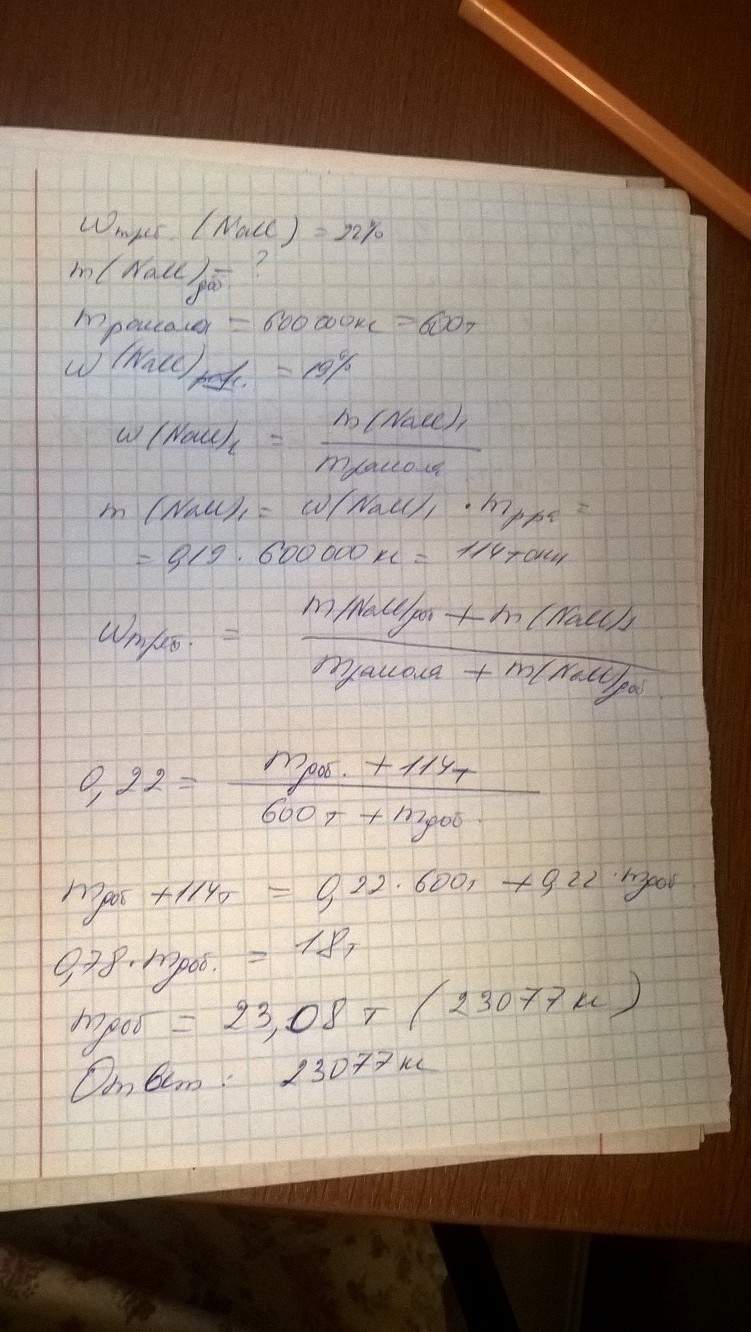 ω треб. (NaCl) = 22%
m(NaCl)доб = ?
m рассола = 600 000 кг = 600 т
ω (NaCl) = 19%
ω (NaCl)₁ = m(NaCl)₁ / m рассола
m (NaCl)₁ = ω(NaCl)₁ · m р-ра =
= 0,19 · 600 000 кг = 114 тонн
ω треб. = m(NaCl)доб + m(NaCl)₁ / m рассола + m(NaCl)доб
0,22 = m доб. + 114 т / 600 т + m доб.
m доб + 114 т = 0,22 · 600 т + 0,22 · m доб
0,78 · m доб. = 18 т
m доб = 23,08 т (23077 кг)
Ответ: 23077 кг